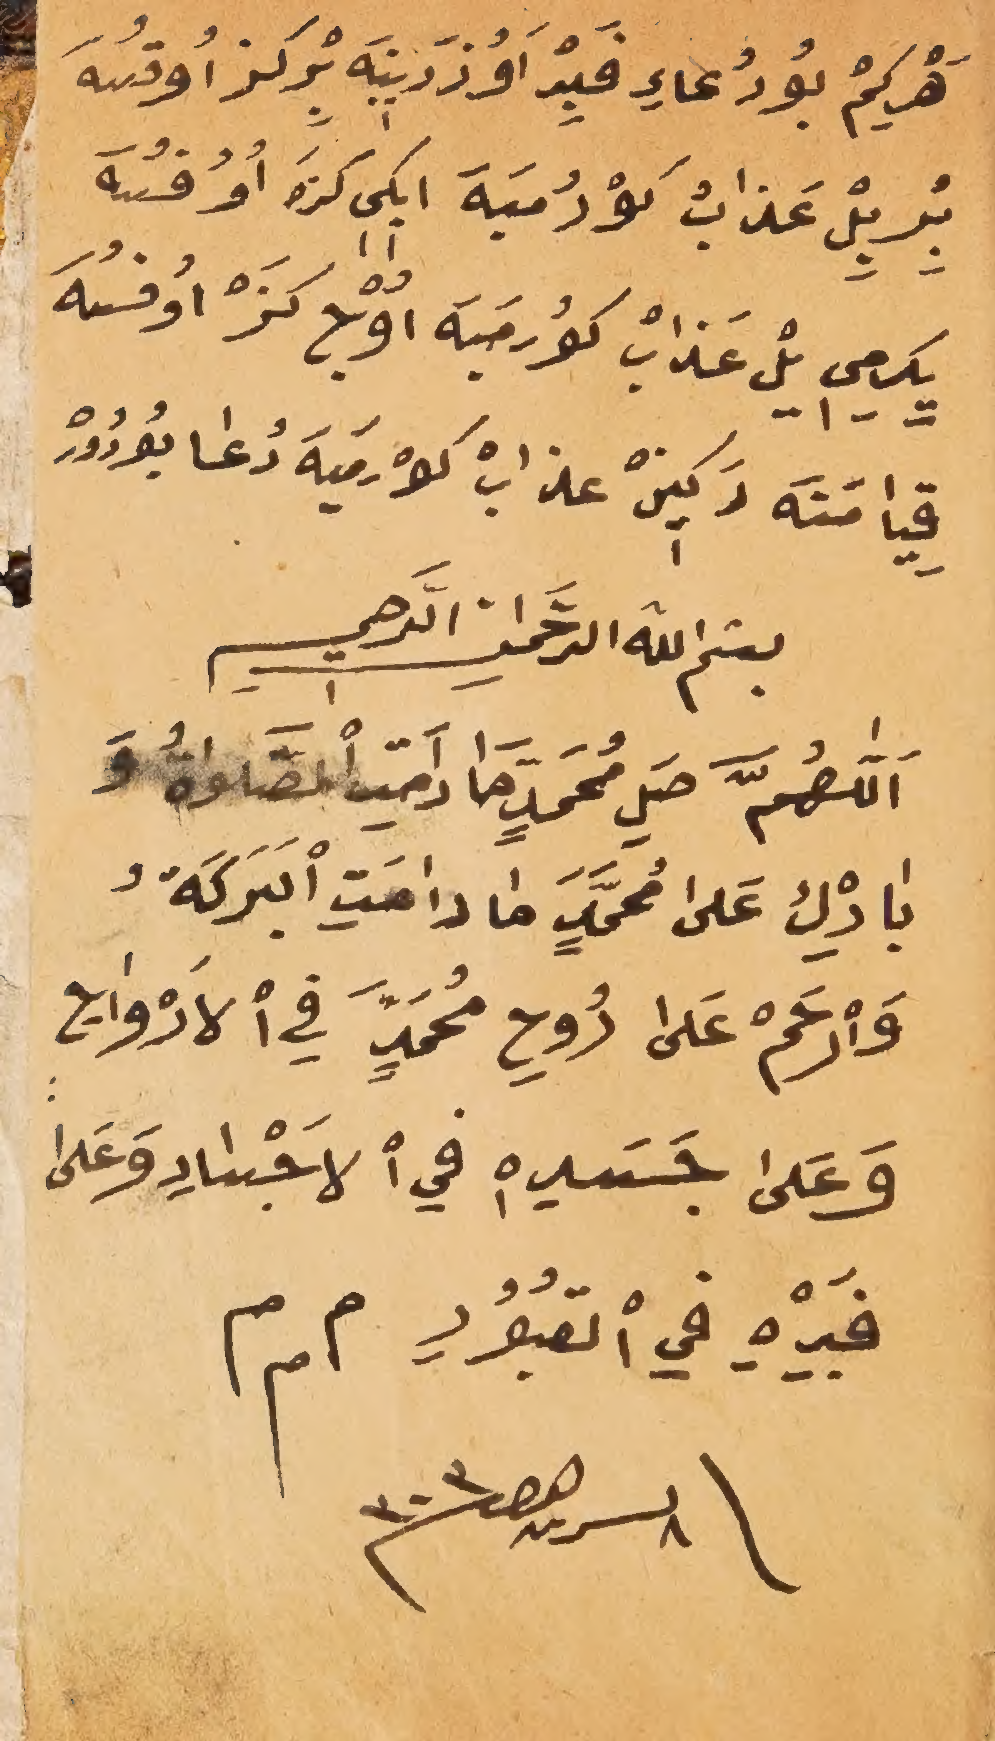 هَرْكِمْ بُو دُعَاءِ قَبِرْ اُوزَرِينَه بِرْ كَز اُوقُسَه
بِر يِلْ عَذَابْ كَوْرْمَيَه اِيكِي كَزَه اُوقُسَه
يِكِرمِي يِلْ عَذَابْ كَوُرمَيَه اُوْچ كَزَه اُوقُسَه
قِيامَتَه دَكِينْ عذابْ كَوْرمَيَه دُعا بُودُورْ
بسم الله الرَّحمن الرَّحيم
اَللّٰهُمَّ صَلِ مُحَمَدٍ مَا دَامَتِ اْلصَّلواةُ وَ
بَارْكِ عَلىٰ مُحَمَّدٍ مَا دامَتِ اْلبَرَكَةُ
وَاْرحَمْ عَلىٰ رُوحِ مُحَمَدٍ فِي اْلاَرْواحِ
وَعَلىٰ جَسَدِهِ فِي اْلاَجْسَادِ وَعَلىٰ
قَبْرِهِ فِي اْلقُبُورِ م م م
٣٠٣